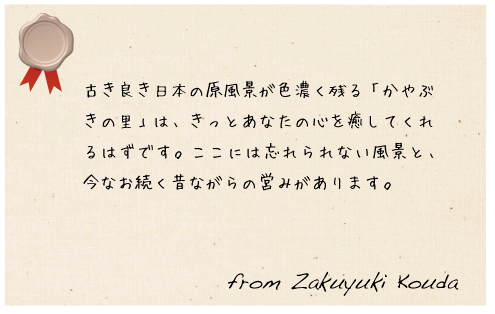 古き良き日本の原風景が色濃く残る「かやぶ
きの里」は、きっとあなたの心を癒してくれ
るはずです。ここには忘れられない風景と、
今なお続く昔ながらの営みがあります。
from Zakuyuki Kouda